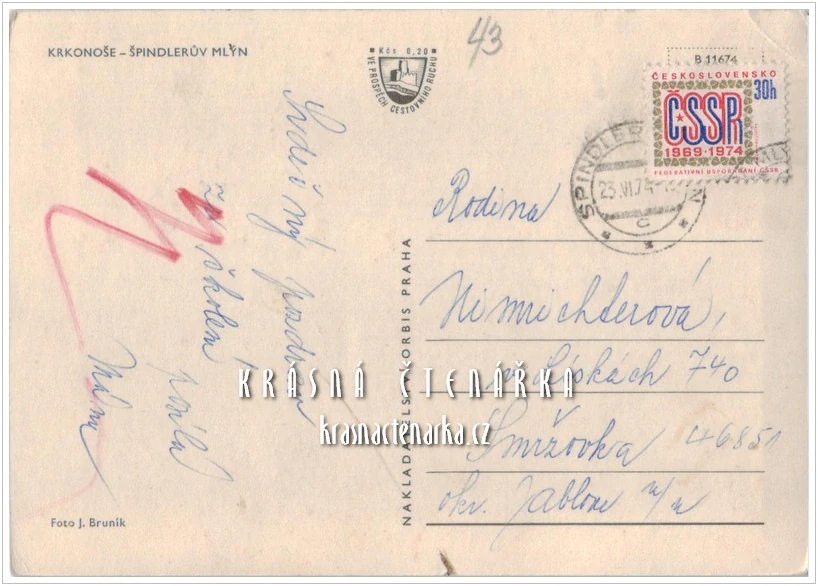 KRKONOŠE – ŠPINDLERŮV MLÝN
Kčs 0,20
VE PROSPĚCH CESTOVNÍHO RUCHU
43
B 11674
ČESKOSLOVENSKO
30h
ČSSR
1969·1974
FEDERATIVNÍ USPOŘÁDÁNÍ ČSSR
ŠPINDLER
23.VI.74
C
Srdečný pozdrav
ze školení
posílá
NAKLADATELSTVÍ ORBIS PRAHA
Rodina
Nimrichterová,
v Lískách 740
Smržovka 46851
okr. Jablonec n/n
KRÁSNÁ ČTENÁŘKA
krasnactenarka.cz
Foto J. Bruník